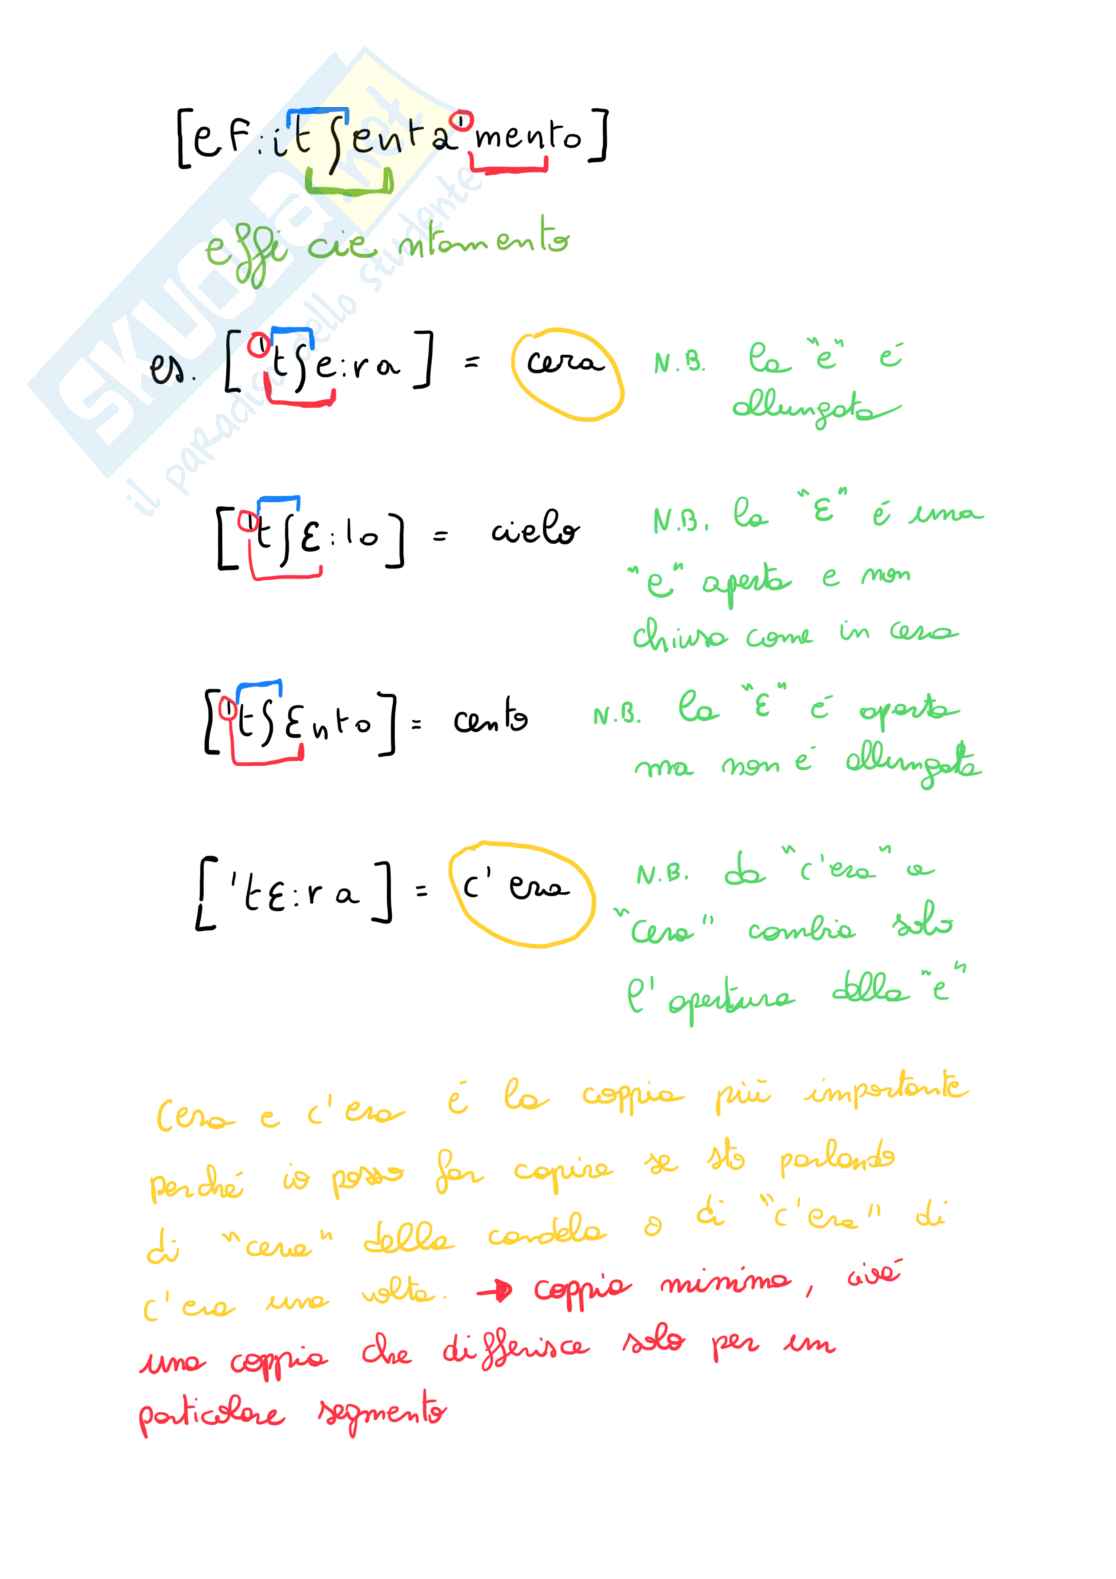 [ef:itʃenta'mento]
effi cie ntamento
es. ['tʃe:ra] = cera N.B. la "e" é
allungata
['tʃɛ:lo] = cielo N.B. la "ɛ" é una
"e" aperta e non
chiusa come in cera
['tʃɛnto] = cento N.B. la "ɛ" é aperta
ma non é allungata
['tɛ:ra] = c'era N.B. da "c'era" a
"cera" cambia solo
l'apertura della "e"
Cera e c'era é la coppia più importante
perché io posso far capire se sto parlando
di "cera" della candela o di "c'era" di
c'era una volta. → coppia minima, cioé
una coppia che differisce solo per un
particolare segmento
SKUOLA.net
il paradiso dello studente